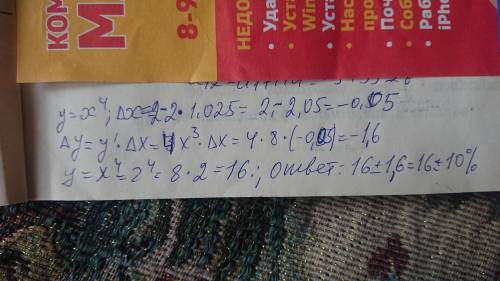 КОМ
М
8-9
НЕДО
• Уда
• Уст
Win
• Уст
• Нас
про
• Поч
• Соб
• Раб
iPho
y=x⁴; Δx=2-2·1.025 = 2,-2,05=-0,05
Δy=y'·Δx=4x³·Δx=4·8·(-0,05)=-1,6
y=x⁴=2⁴=8·2=16.; ответ: 16±1,6=16±10%